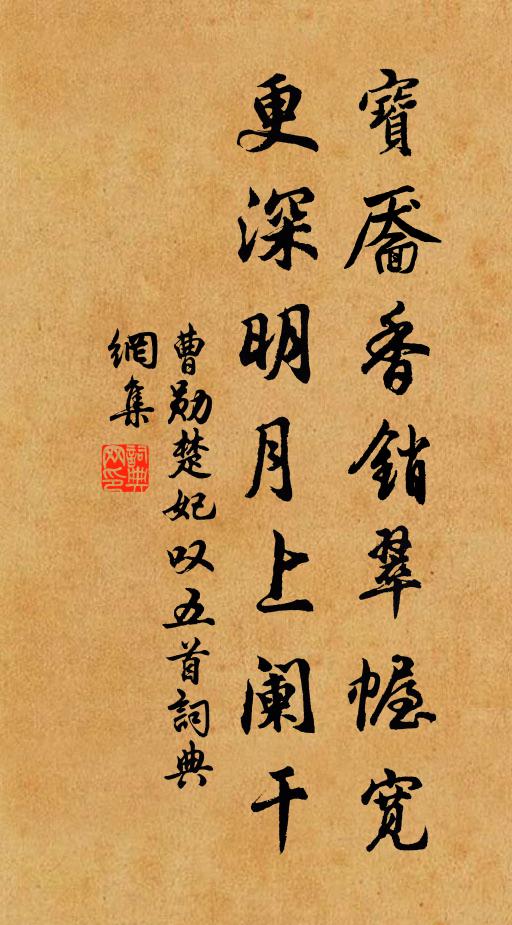 寶靨香銷翠幄寬
更深明月上阑干
曹勋楚妃叹五首詞典
網集
詞典
网印